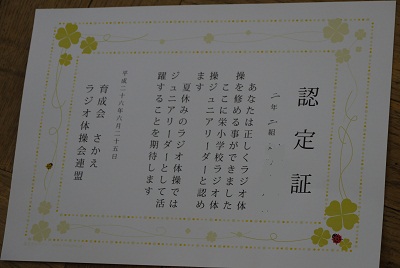 認定証
二年二組
あなたは正しくラジオ体
操を修める事ができました
ここに栄小学校ラジオ体
操ジュニアリーダーと認め
ます
夏休みのラジオ体操では
ジュニアリーダーとして活
躍することを期待します
平成二十六年六月二十五日
育成会 さかえ
ラジオ体操会連盟